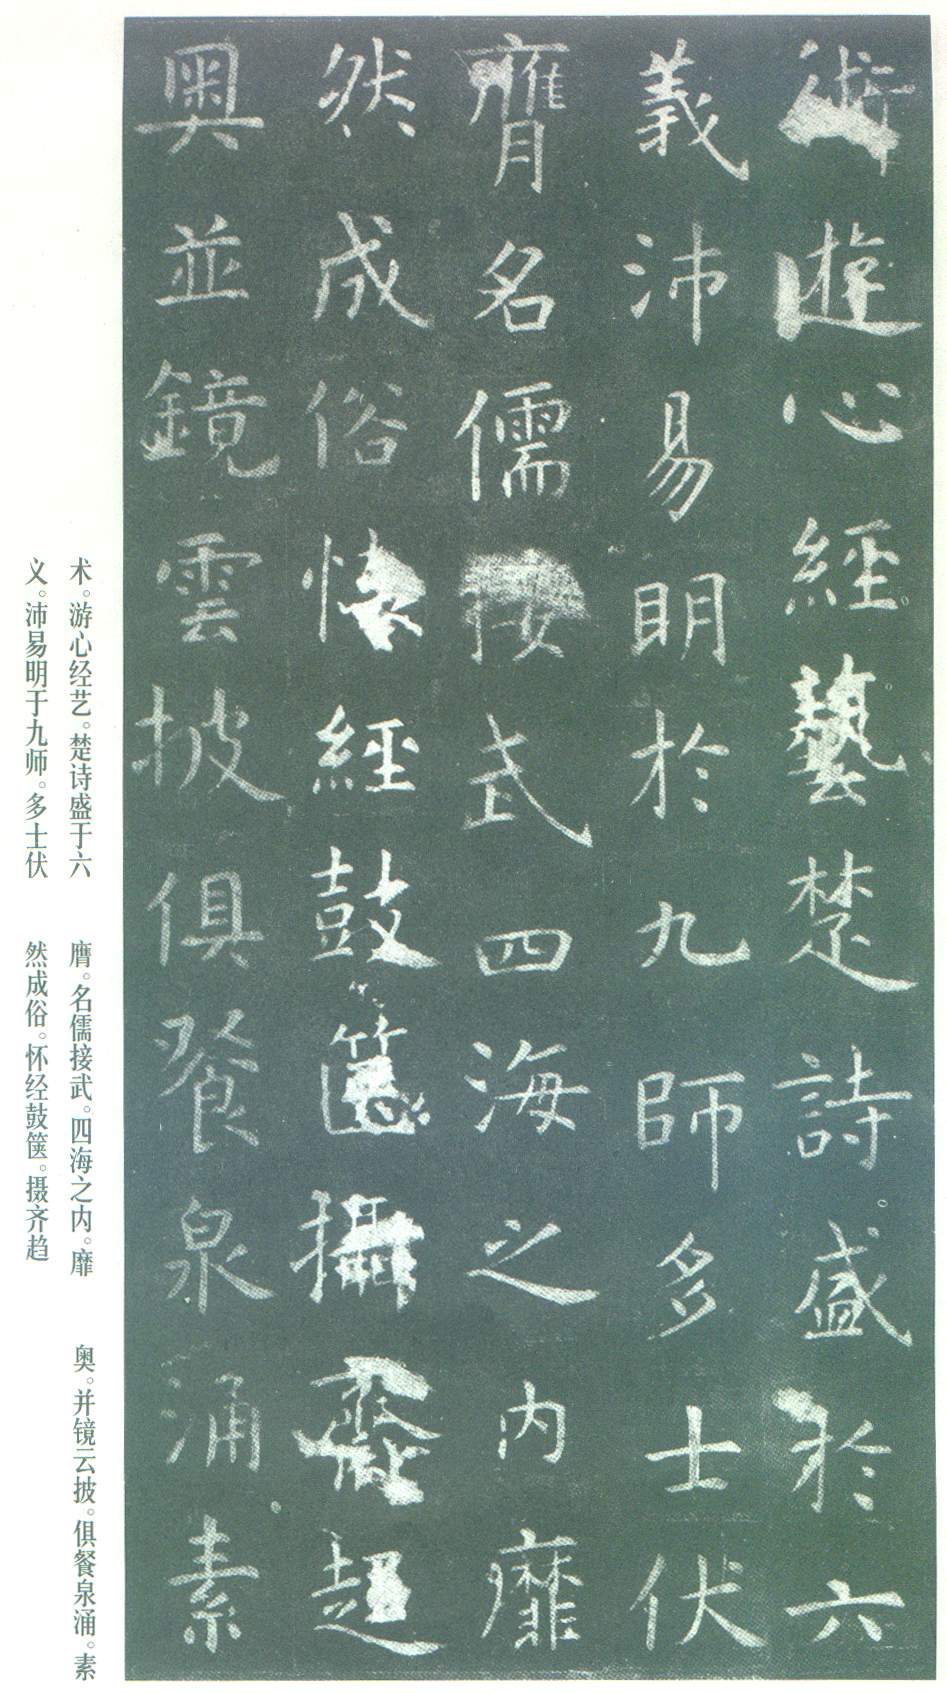 術遊心經藝楚詩盛於六
義沛易明於九師多士伏
膺名儒接武四海之内靡
然成俗懷經鼓篋攝齋趍
奧並鏡雲披俱餐泉涌素
术。游心经艺。楚诗盛于六
义。沛易明于九师。多士伏
膺。名儒接武。四海之内。靡
然成俗。怀经鼓箧。摄齐趋
奥。并镜云披。俱餐泉涌。素